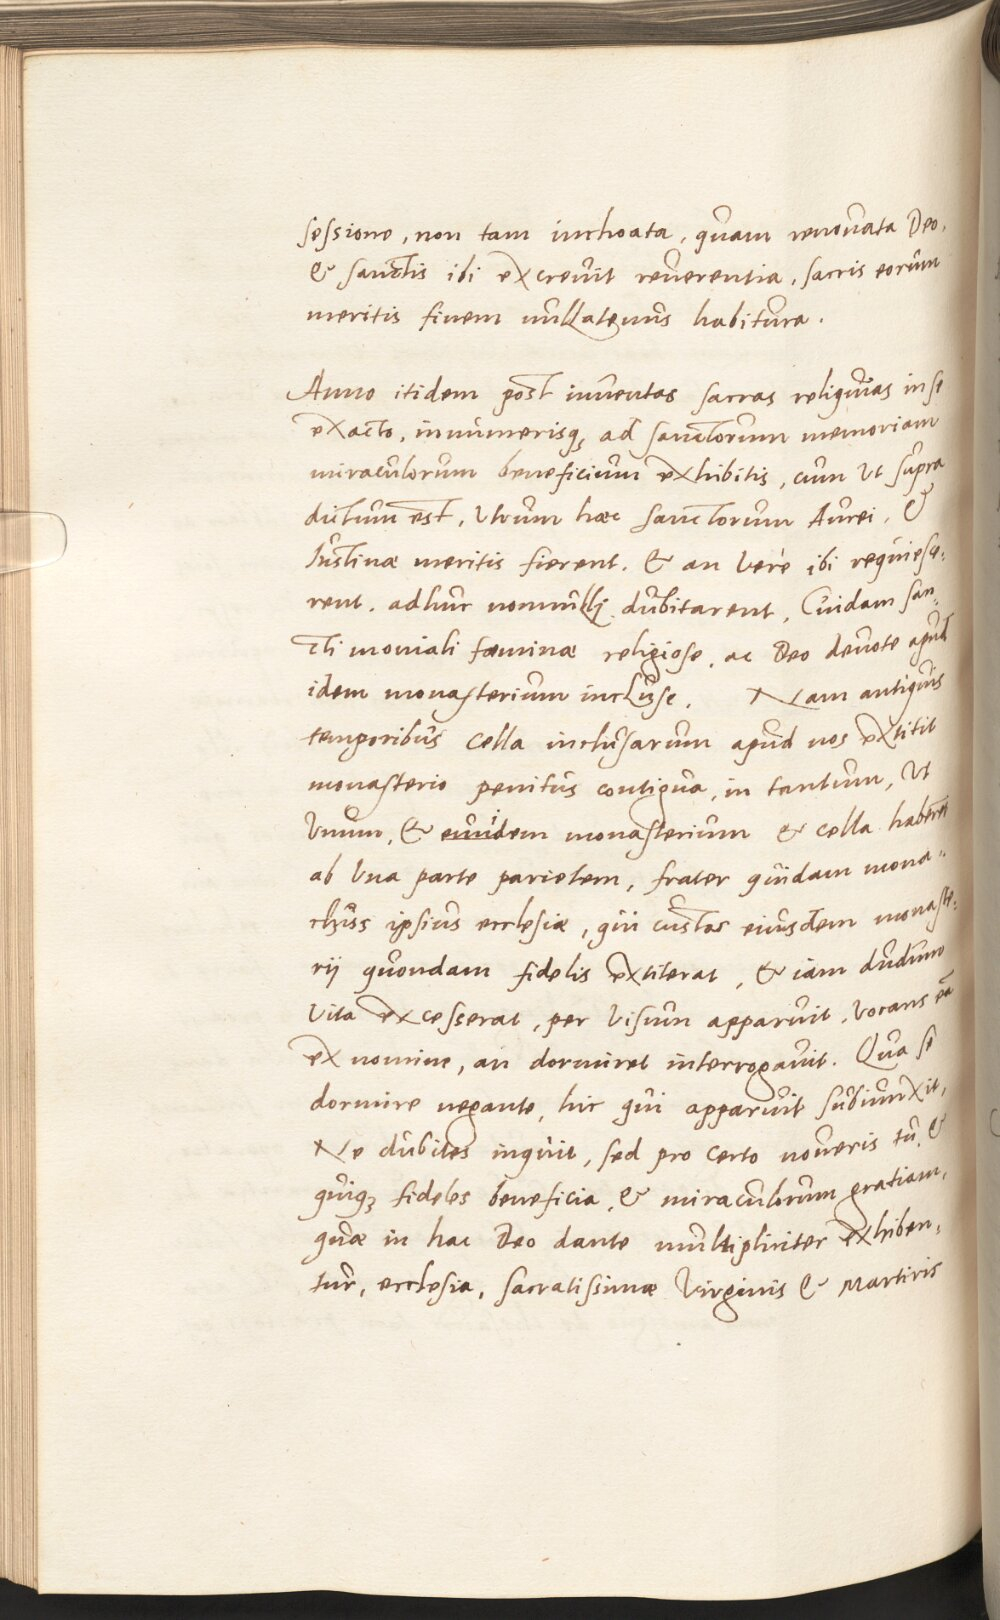 sessione, non tam inchoata, quam renouata Deo,
& sanctis ibi excreuit reuerentia, sacris eorum
meritis finem nullatenus habitura.
Anno itidem post inuentas sacras reliquias in se
exacto, innumerisq; ad sanctorum memoriam
miraculorum beneficium exhibitis, cum ut supra
dictum est, utrum hæc sanctorum Aurei, &
Iustinæ meritis fierent. & an verè ibi requiesce:
rent. adhuc nonnullj dubitarent, Cuidam san„
cti moniali fœminæ religiose, ac Deo deuote apud
idem monasterium incluse. Nam antiquis
temporibus cella inclusarum apud nos extitit
monasterio penitus contigua, in tantum, ut
unum, & eundem monasterium & cella haberet
ab una parte parietem, frater quidam mona„
chus ipsius ecclesiæ, qui custos eiusdem monaste:
rij quondam fidelis extiterat, & iam dudum
vita excesserat, per visum apparuit, vocans eā
ex nomine, an dormiret interrogauit. Qua se
dormire negante, hic qui apparuit subiunxit,
Ne dubites inquit, sed pro certo noueris tu, &
quiq; fideles beneficia, & miraculorum gratiam,
quæ in hac Deo dante multipliciter exhiben„
tur, ecclesia, sacratissimæ Virginis & Martiris